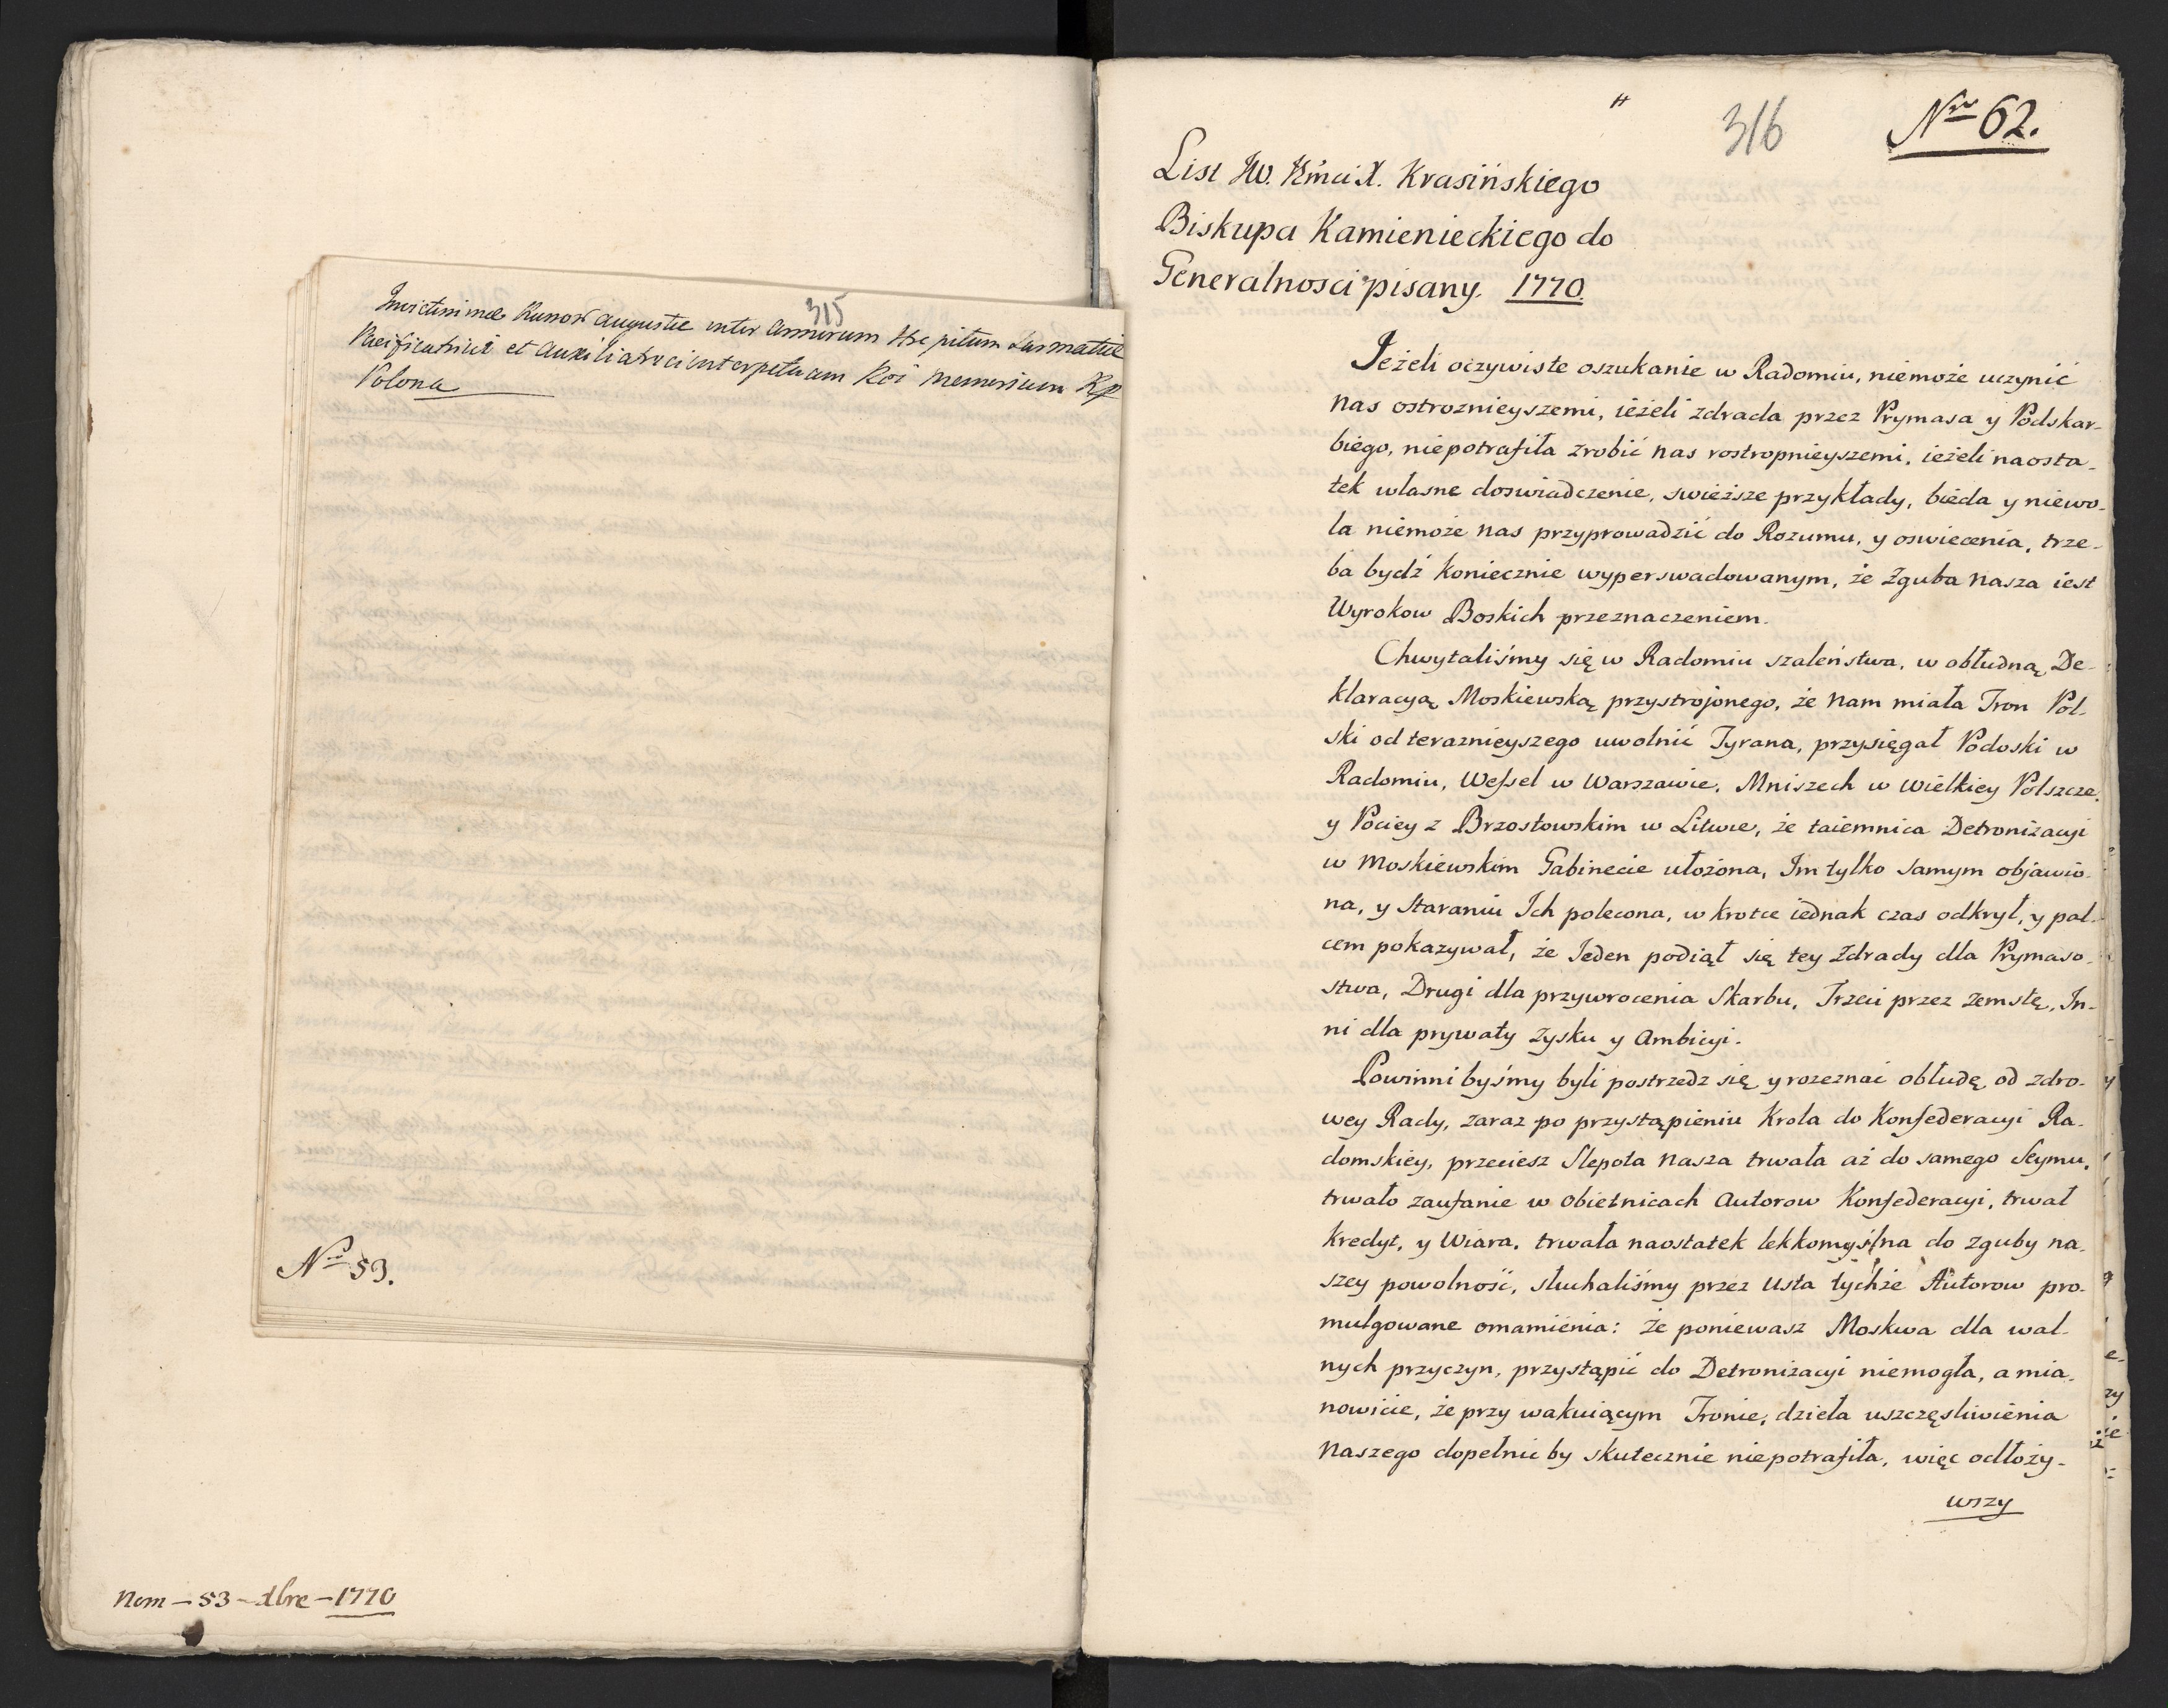 315
Invictissimæ Russor Augustæ inter Armorum Strepitum Sarmatiæ
Pacificatrici et Auxiliatrici in perpetuam Rei memoriam Rp
Polona
No 53.
Nom – 53 – xbre – 1770
316
Nro 62.
List JW. Jmci X. Krasińskiego
Biskupa Kamienieckiego do
Generalnosci pisany. 1770.
Jeżeli oczywiste oszukanie w Radomiu, niemoże uczynić
nas ostroznieyszemi, ieżeli zdrada przez Prymasa y Podskar-
biego, niepotrafiła zrobić nas rostropnieyszemi, ieżeli naosta-
tek własne doswiadczenie, swieższe przykłady, bieda y niewo-
la niemoże nas przyprowadzić do Rozumu, y oswiecenia, trze-
ba bydź koniecznie wyperswadowanym, że Zguba nasza iest
Wyrokow Boskich przeznaczeniem.
Chwytaliśmy się w Radomiu szaleństwa, w obłudną De-
klaracyą Moskiewską przystrojonego, że nam miała Tron Pol-
ski od teraznieyszego uwolnić Tyrana, przysięgał Podoski w
Radomiu, Wessel w Warszawie, Mniszech w Wielkiey Polszcze,
y Pociey z Brzostowskim w Litwie, że taiemnica Detronizacyi
w Moskiewskim Gabinecie ułożona, Im tylko samym objawio-
na, y Staraniu Ich polecona, w krotce iednak czas odkrył, y pal-
cem pokazywał, że Jeden podiął się tey Zdrady dla Prymaso-
stwa, Drugi dla przywrocenia Skarbu, Trzeci przez zemstę, In-
ni dla prywaty Zysku y Ambicyi.
Powinni byśmy byli postrzedz się y rozeznać obłudę od zdro-
wey Rady, zaraz po przystąpieniu Krola do Konfederacyi Ra-
domskiey, przeciesz Slepota nasza trwała aż do samego Seymu,
trwało zaufanie w obietnicach Autorow Konfederacyi, trwał
kredyt, y Wiara, trwała naostatek lekkomyślna do zguby na-
szey powolność, słuchaliśmy przez usta tychże Autorow pro-
mulgowane omamienia: że poniewasz Moskwa dla wal-
nych przyczyn, przystąpić do Detronizacyi niemogła, a mia-
nowicie, że przy wakuiącym Tronie, dzieła uszczęsliwienia
Naszego dopełnić by skutecznie niepotrafiła, więc odłoży-
wszy